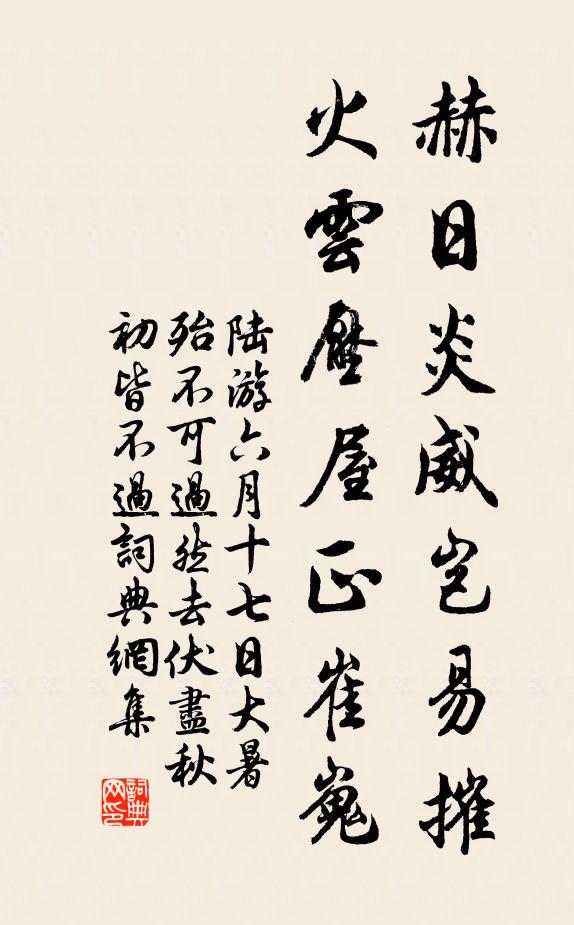 赫日炎威岂易摧
火雲壓屋正崔嵬
陆游六月十七日大暑
殆不可過然去伏盡秋
初皆不過詞典網集
詞典
网印